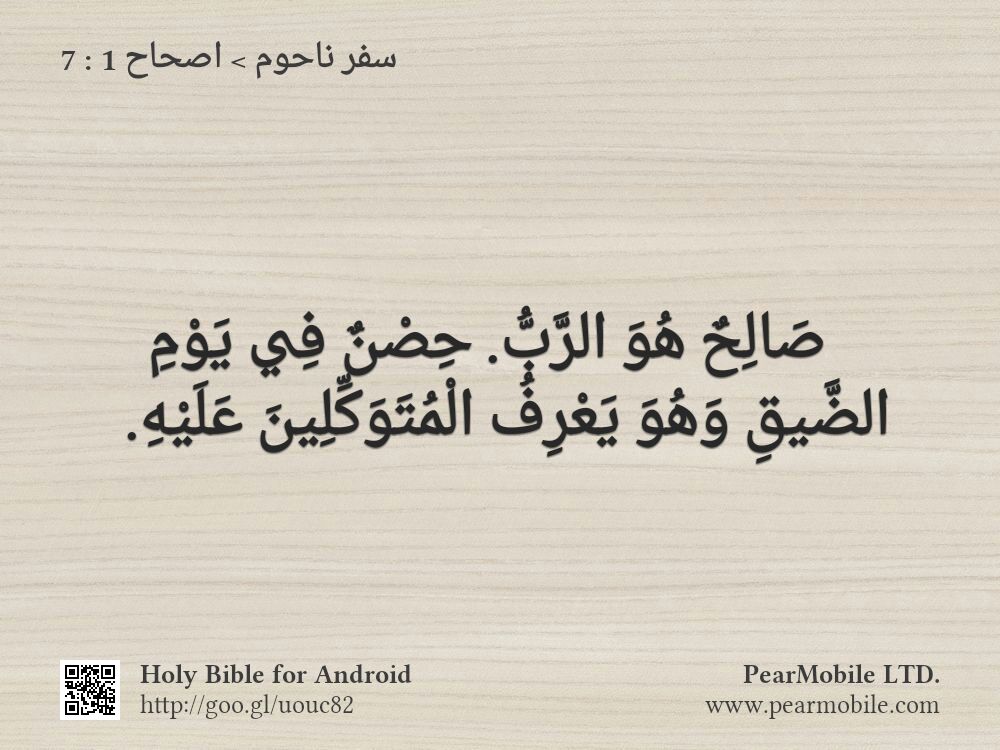 سفر ناحوم > اصحاح 1 : 7
صَالِحٌ هُوَ الرَّبُّ. حِصْنٌ فِي يَوْمِ
الضَّيقِ وَهُوَ يَعْرِفُ الْمُتَوَكِّلِينَ عَلَيْهِ.
Holy Bible for Android
http://goo.gl/uouc82
PearMobile LTD.
www.pearmobile.com